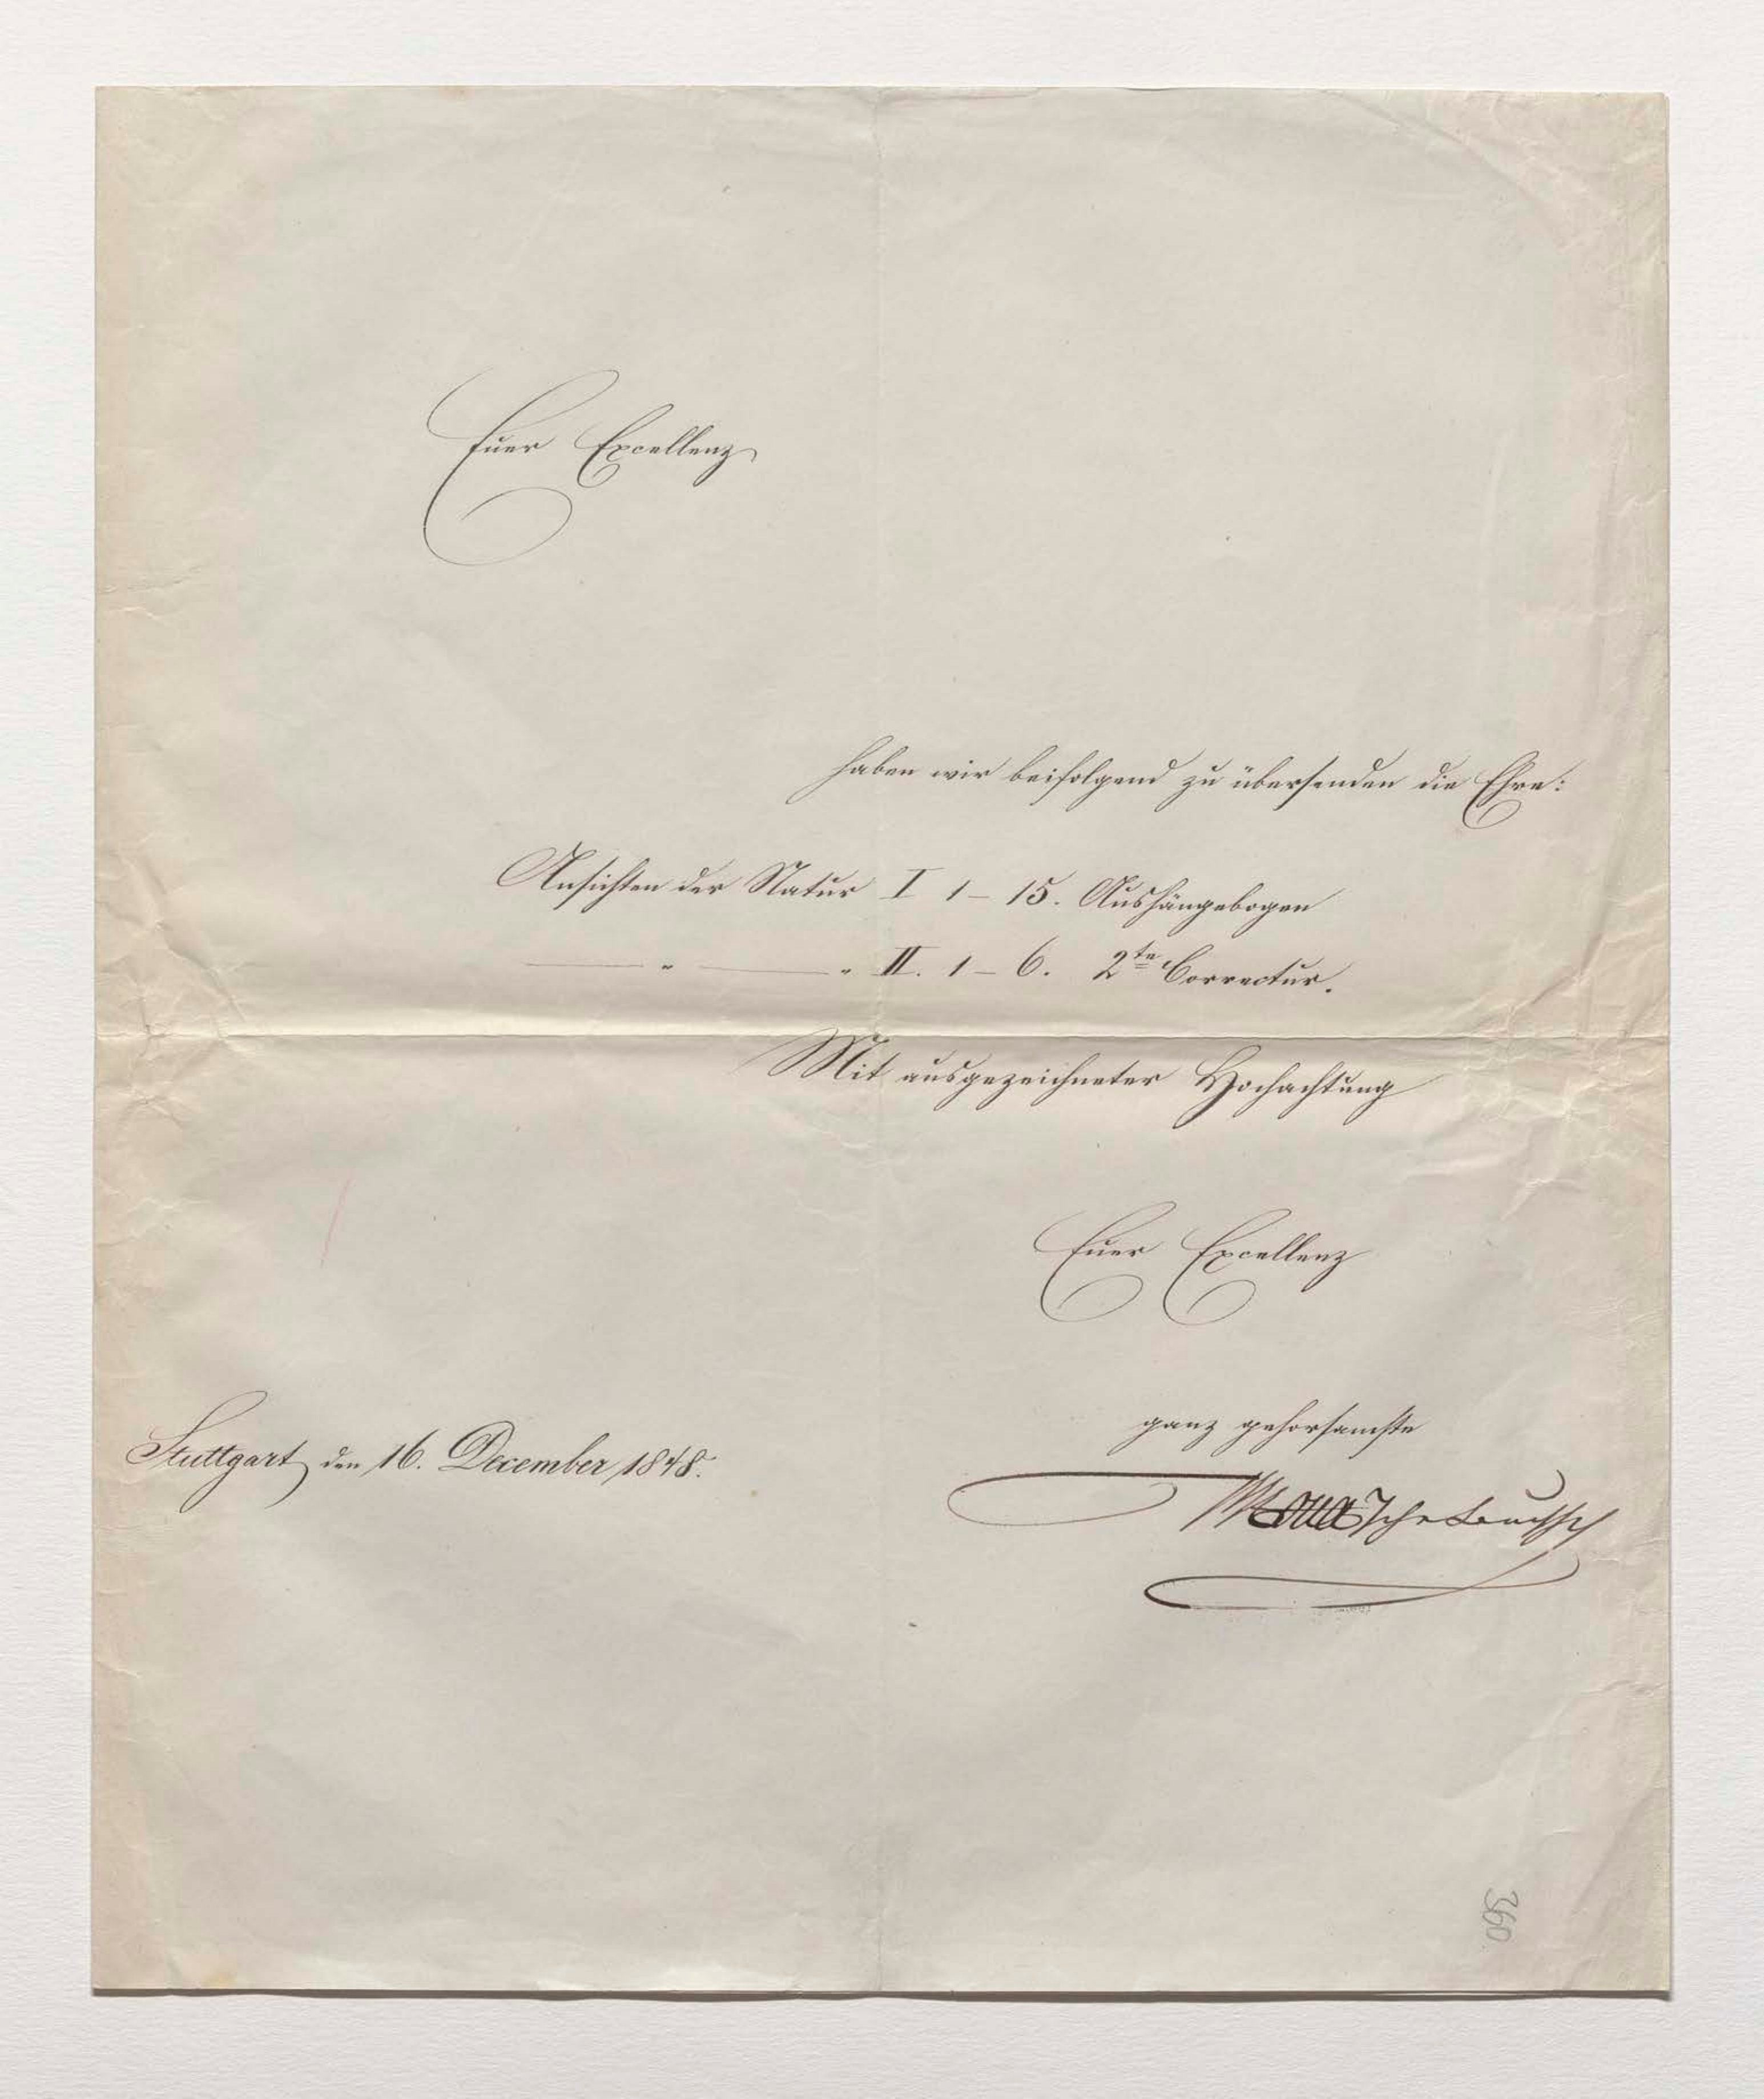 Euer Excellenz
haben wir beifolgend zu übersenden die Ehre:
Ansichten der Natur I 1 – 15. Aushängebogen
— " — " II. 1 – 6. 2te Correctur.
Mit ausgezeichneter Hochachtung
Euer Excellenz
ganz gehorsamste
Stuttgart den 16. December 1848.
360